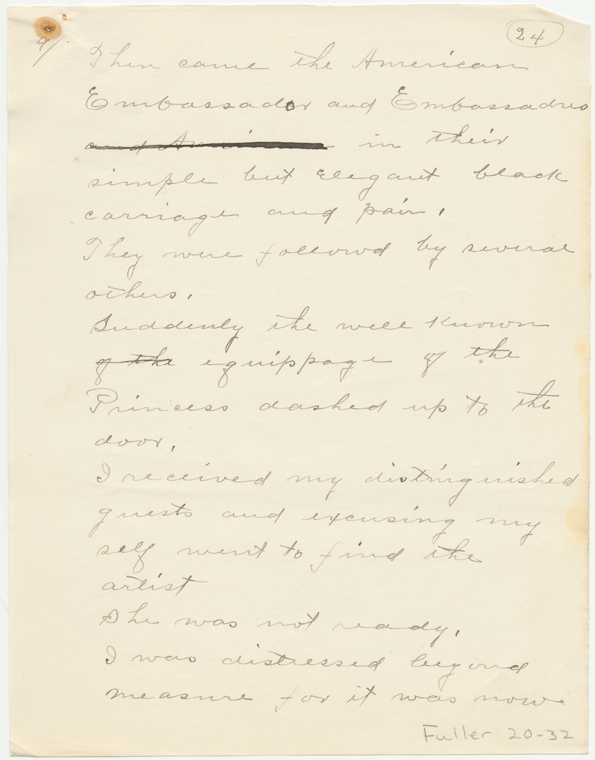 24
9/
Then came the American
Embassador and Embassadress
in their
simple but elegant black
carriage and pair.
They were followd by several
others.
Suddenly the well known
of the equippage of the
Princess dashed up to the
door.
I received my distinguished
guests and excusing my
self went to find the
artist
She was not ready.
I was distressed beyond
measure for it was now
Fuller 20-32